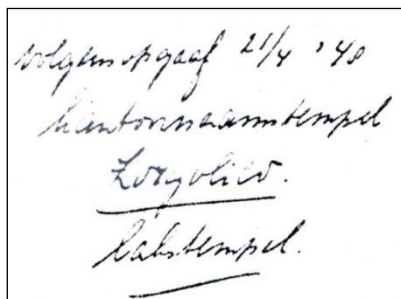 volgens opgaaf 21/4 '40
kantoornaamstempel

kabstempel.